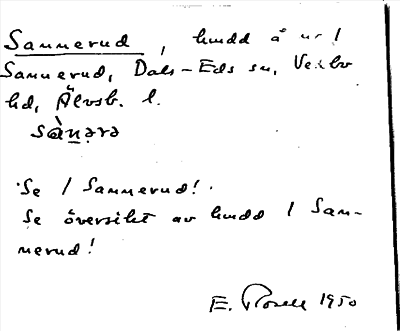 Sannerud, hmdd å nr 1
Sannerud, Dals-Eds sn, Vedbo
hd, Älvsb. l.
sànərə
Se 1 Sannerud!
Se översikt av hmdd 1 San-
nerud!
E. Rosell 1950